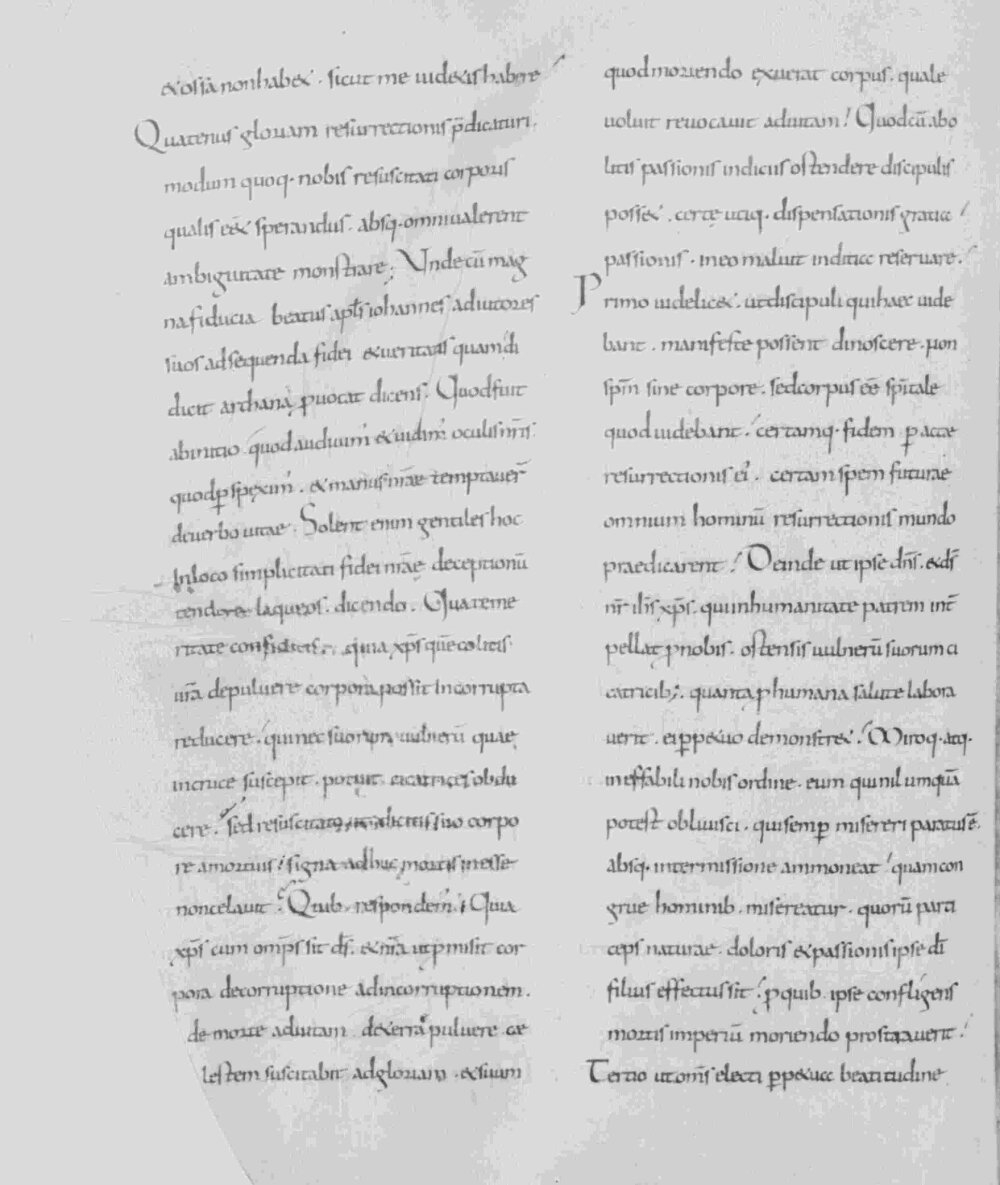 & ossa non hab& . sicut me uidetis habere
Quatenus gloriam resurrectionis p̄dicaturi .
modum quoq. nobis resuscitati corporis
qualis eēt sperandus . absq. omni ualerent
ambiguitate monstrare ; Unde cū mag
na fiducia beatus apl̄s iohannes adiutores
suos ad sequenda fidei & ueritatis quam di
dicit archana ꝓuocat dicens . Quod fuit
ab initio . quod audiuim' & uidim' oculis nr̄is .
quod ꝑspexim' . & manus nr̄ae temptauer̄
de uerbo uitae . Solent enim gentiles hoc
In loco simplicitati fidei nr̄ae deceptionū
tendere laqueos . dicendo . Qua teme
ritate confiditis . quia xp̄s quē colitis
ur̄a de puluere corpora possit incorrupta
reducere . qui nec suorum uulnerū quae
in cruce suscepit . potuit cicatrices obdu
cere . sed resuscitato suo corpo
re a mortuis signa adhuc mortis inesse
non celauit . Quib. respondem' . Quia
xp̄s cum omp̄s sit d̄s . & nr̄a ut ꝓmisit cor
pora de corruptione ad incorruptionem .
de morte ad uitam . de terra puluere cę
lestem suscitabit ad gloriam . & suum
quod moriendo exuerat corpus . quale
uoluit reuocauit ad uitam ! Quod cū abo
litis passionis indiciis ostendere discipulis
poss& . certe utiq. dispensationis gratia
passionis . in eo maluit indicia reseruare .
Primo uidelic& . ut discipuli qui haec uide
bant . manifeste possent dinoscere . non
sp̄m sine corpore . sed corpus eē sp̄itale
quod uidebant . certamq. fidem ꝑactae
resurrectionis ei' . certam spem futurae
omnium hominū resurrectionis mundo
praedicarent ! Deinde ut ipse dn̄s . & ds̄
nr̄ ih̄s xp̄s . qui in humanitate patrem int̄
pellat ꝓ nobis . ostensis uulnerū suorum ci
catricib; . quanta ꝓ humana salute labora
uerit . ei ꝑp&uo demonstr& . Miroq. atq.
ineffabili nobis ordine . eum qui nil umquā
potest obliuisci . qui semꝑ misereri paratus ē .
absq. intermissione ammoneat ! quam con
grue hominib. misereatur . quorū parti
ceps naturae . doloris & passionis ipse dī
filius effectus sit . ꝓ quib. ipse confligens
mortis imperiū moriendo prostrauerit !
Tertio ut om̄s electi ꝑp&ua in beatitudine